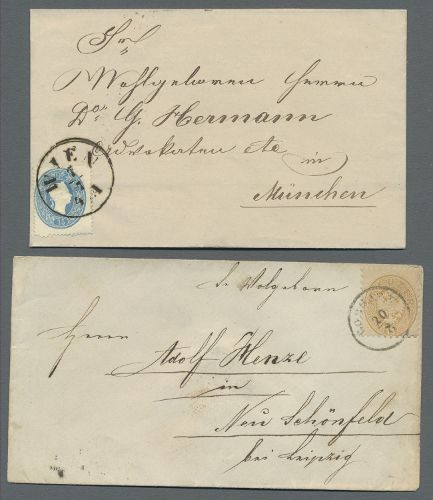 Sr
Wohlgeboren Herrn
Dor G. Hermann
Advokaten etc
in
München
WIEN
Sr Wolgeborn
Herrn
Adolf Henze
in
Neu Schönfeld
bei Leipzig
20